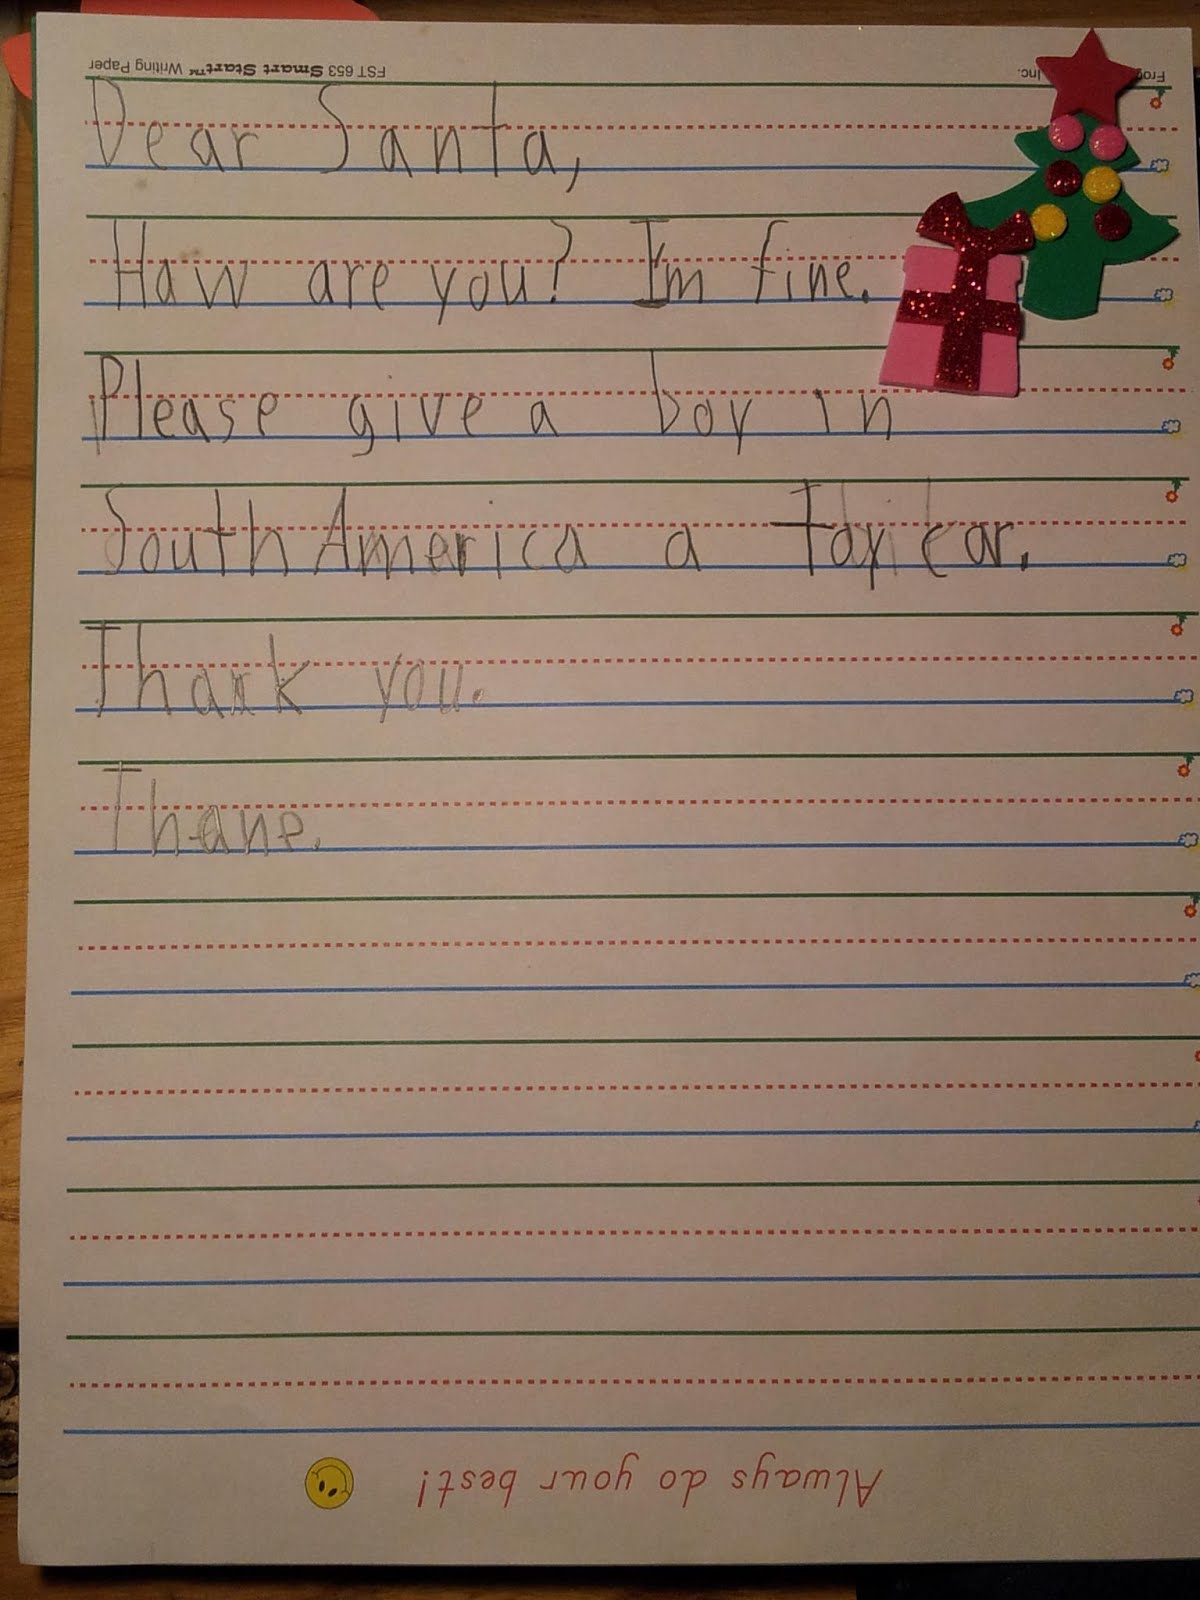 FST 653 Smart Start™ Writing Paper
Inc.
Dear Santa,
Haw are you? I'm fine.
Please give a boy in
South America a taxi car.
Thank you.
Thane.
Always do your best!